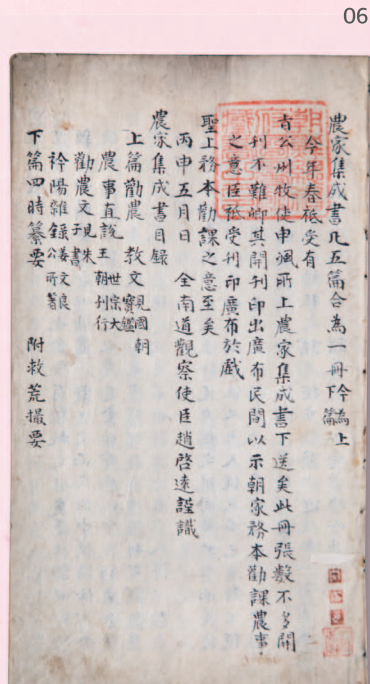 06
農家集成書凡五篇合為一冊今為上下篇
今年春祗受有
旨公州牧使申洬所上農家集成書下送矣此冊張數不多開
刊不難卿其開刊印出廣布民間以示朝家務本勸課農事
之意臣祗受刊印廣布於戲
聖上務本勸課之意至矣
丙申五月日 全南道觀察使臣趙啓遠謹識
農家集成書目錄
上篇勸農 教文見國朝寶鑑
農事直說世宗大王朝刊行
勸農文見朱子書
衿陽雜錄姜文良公所著
下篇四時纂要 附救荒撮要